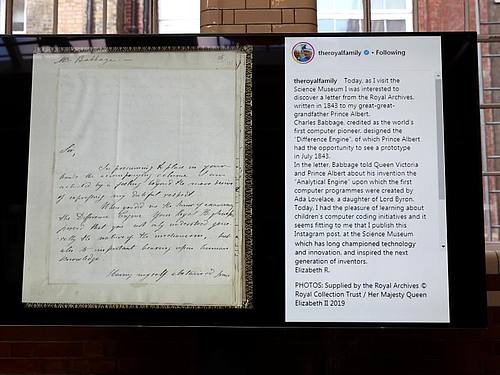 Mr. Babbage.
Sir,
In presuming to place in your
hands the accompanying volume I am
actuated by a feeling beyond the mere desire
of expressing my dutiful respect
When
the Difference Engine, Your Royal Highness
proved that you not only understood
the nature of the mechanism, but
also its important bearing upon human
knowledge
Having myself
theroyalfamily • Following
theroyalfamily Today, as I visit the
Science Museum I was interested to
discover a letter from the Royal Archives,
written in 1843 to my great-great-
grandfather Prince Albert.
Charles Babbage, credited as the world's
first computer pioneer, designed the
"Difference Engine", of which Prince Albert
had the opportunity to see a prototype
in July 1843.
In the letter, Babbage told Queen Victoria
and Prince Albert about his invention the
"Analytical Engine" upon which the first
computer programmes were created by
Ada Lovelace, a daughter of Lord Byron.
Today, I had the pleasure of learning about
children's computer coding initiatives and it
seems fitting to me that I publish this
Instagram post, at the Science Museum
which has long championed technology
and innovation, and inspired the next
generation of inventors.
Elizabeth R.
PHOTOS: Supplied by the Royal Archives ©
Royal Collection Trust / Her Majesty Queen
Elizabeth II 2019